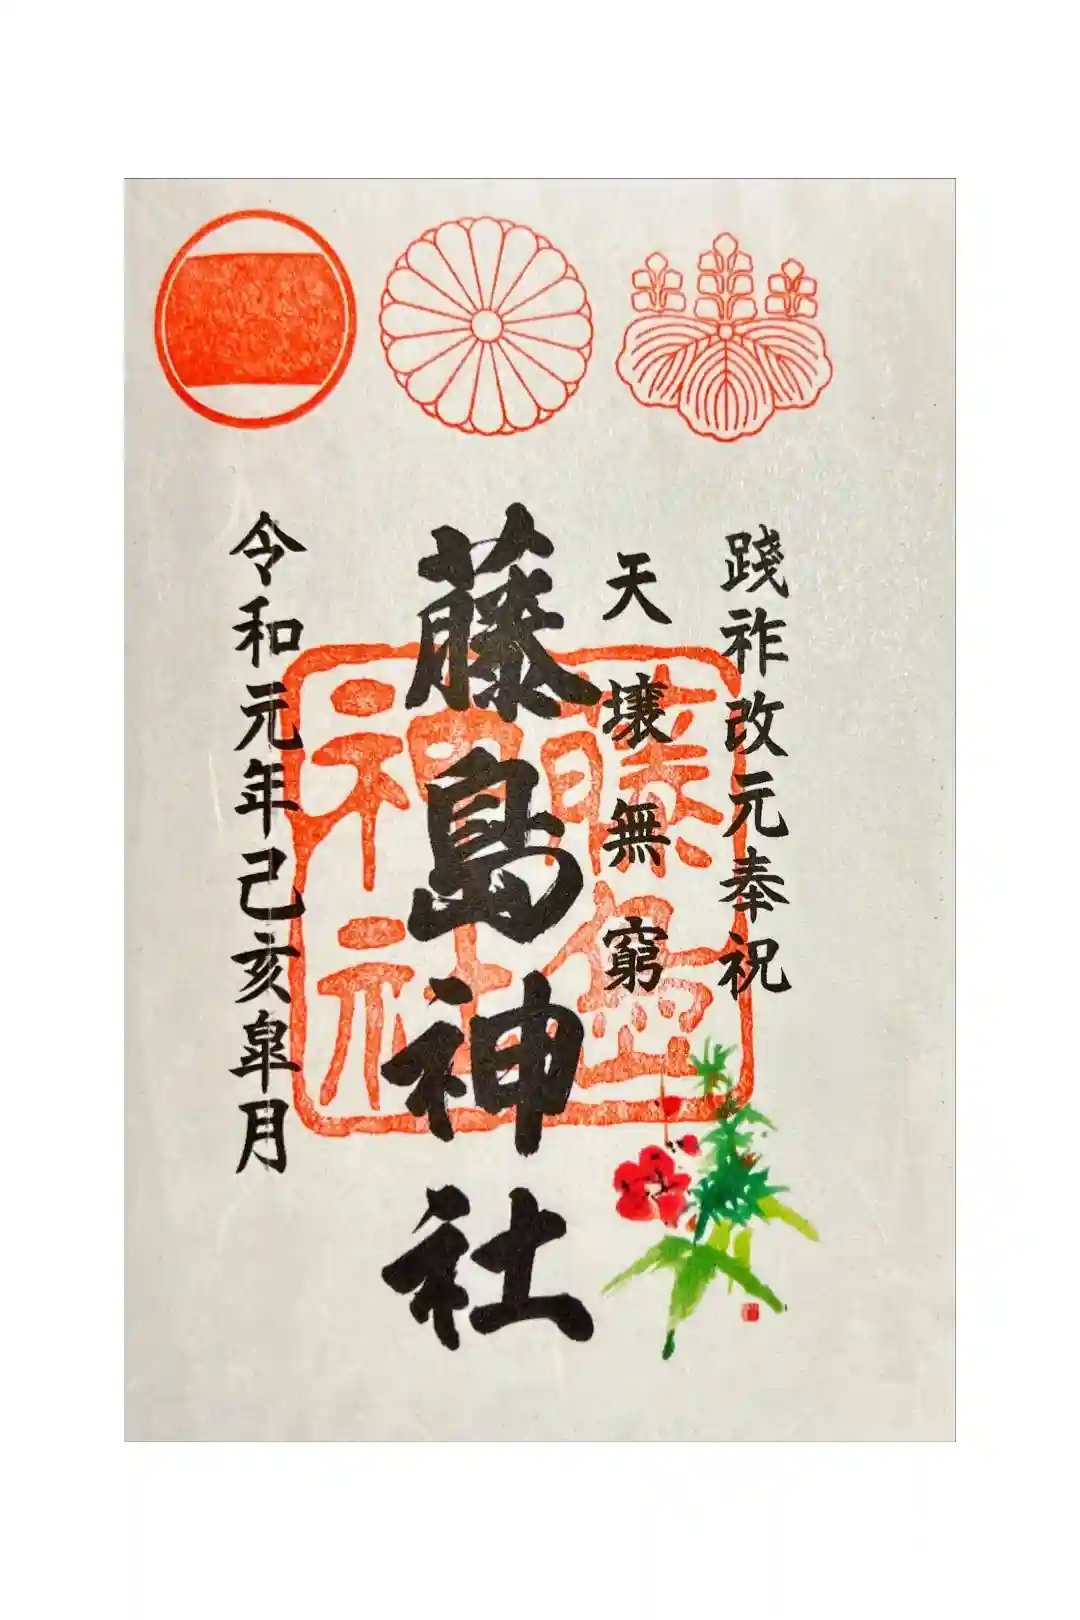 踐祚改元奉祝
天壌無窮
藤島神社
藤島神社
令和元年己亥皐月